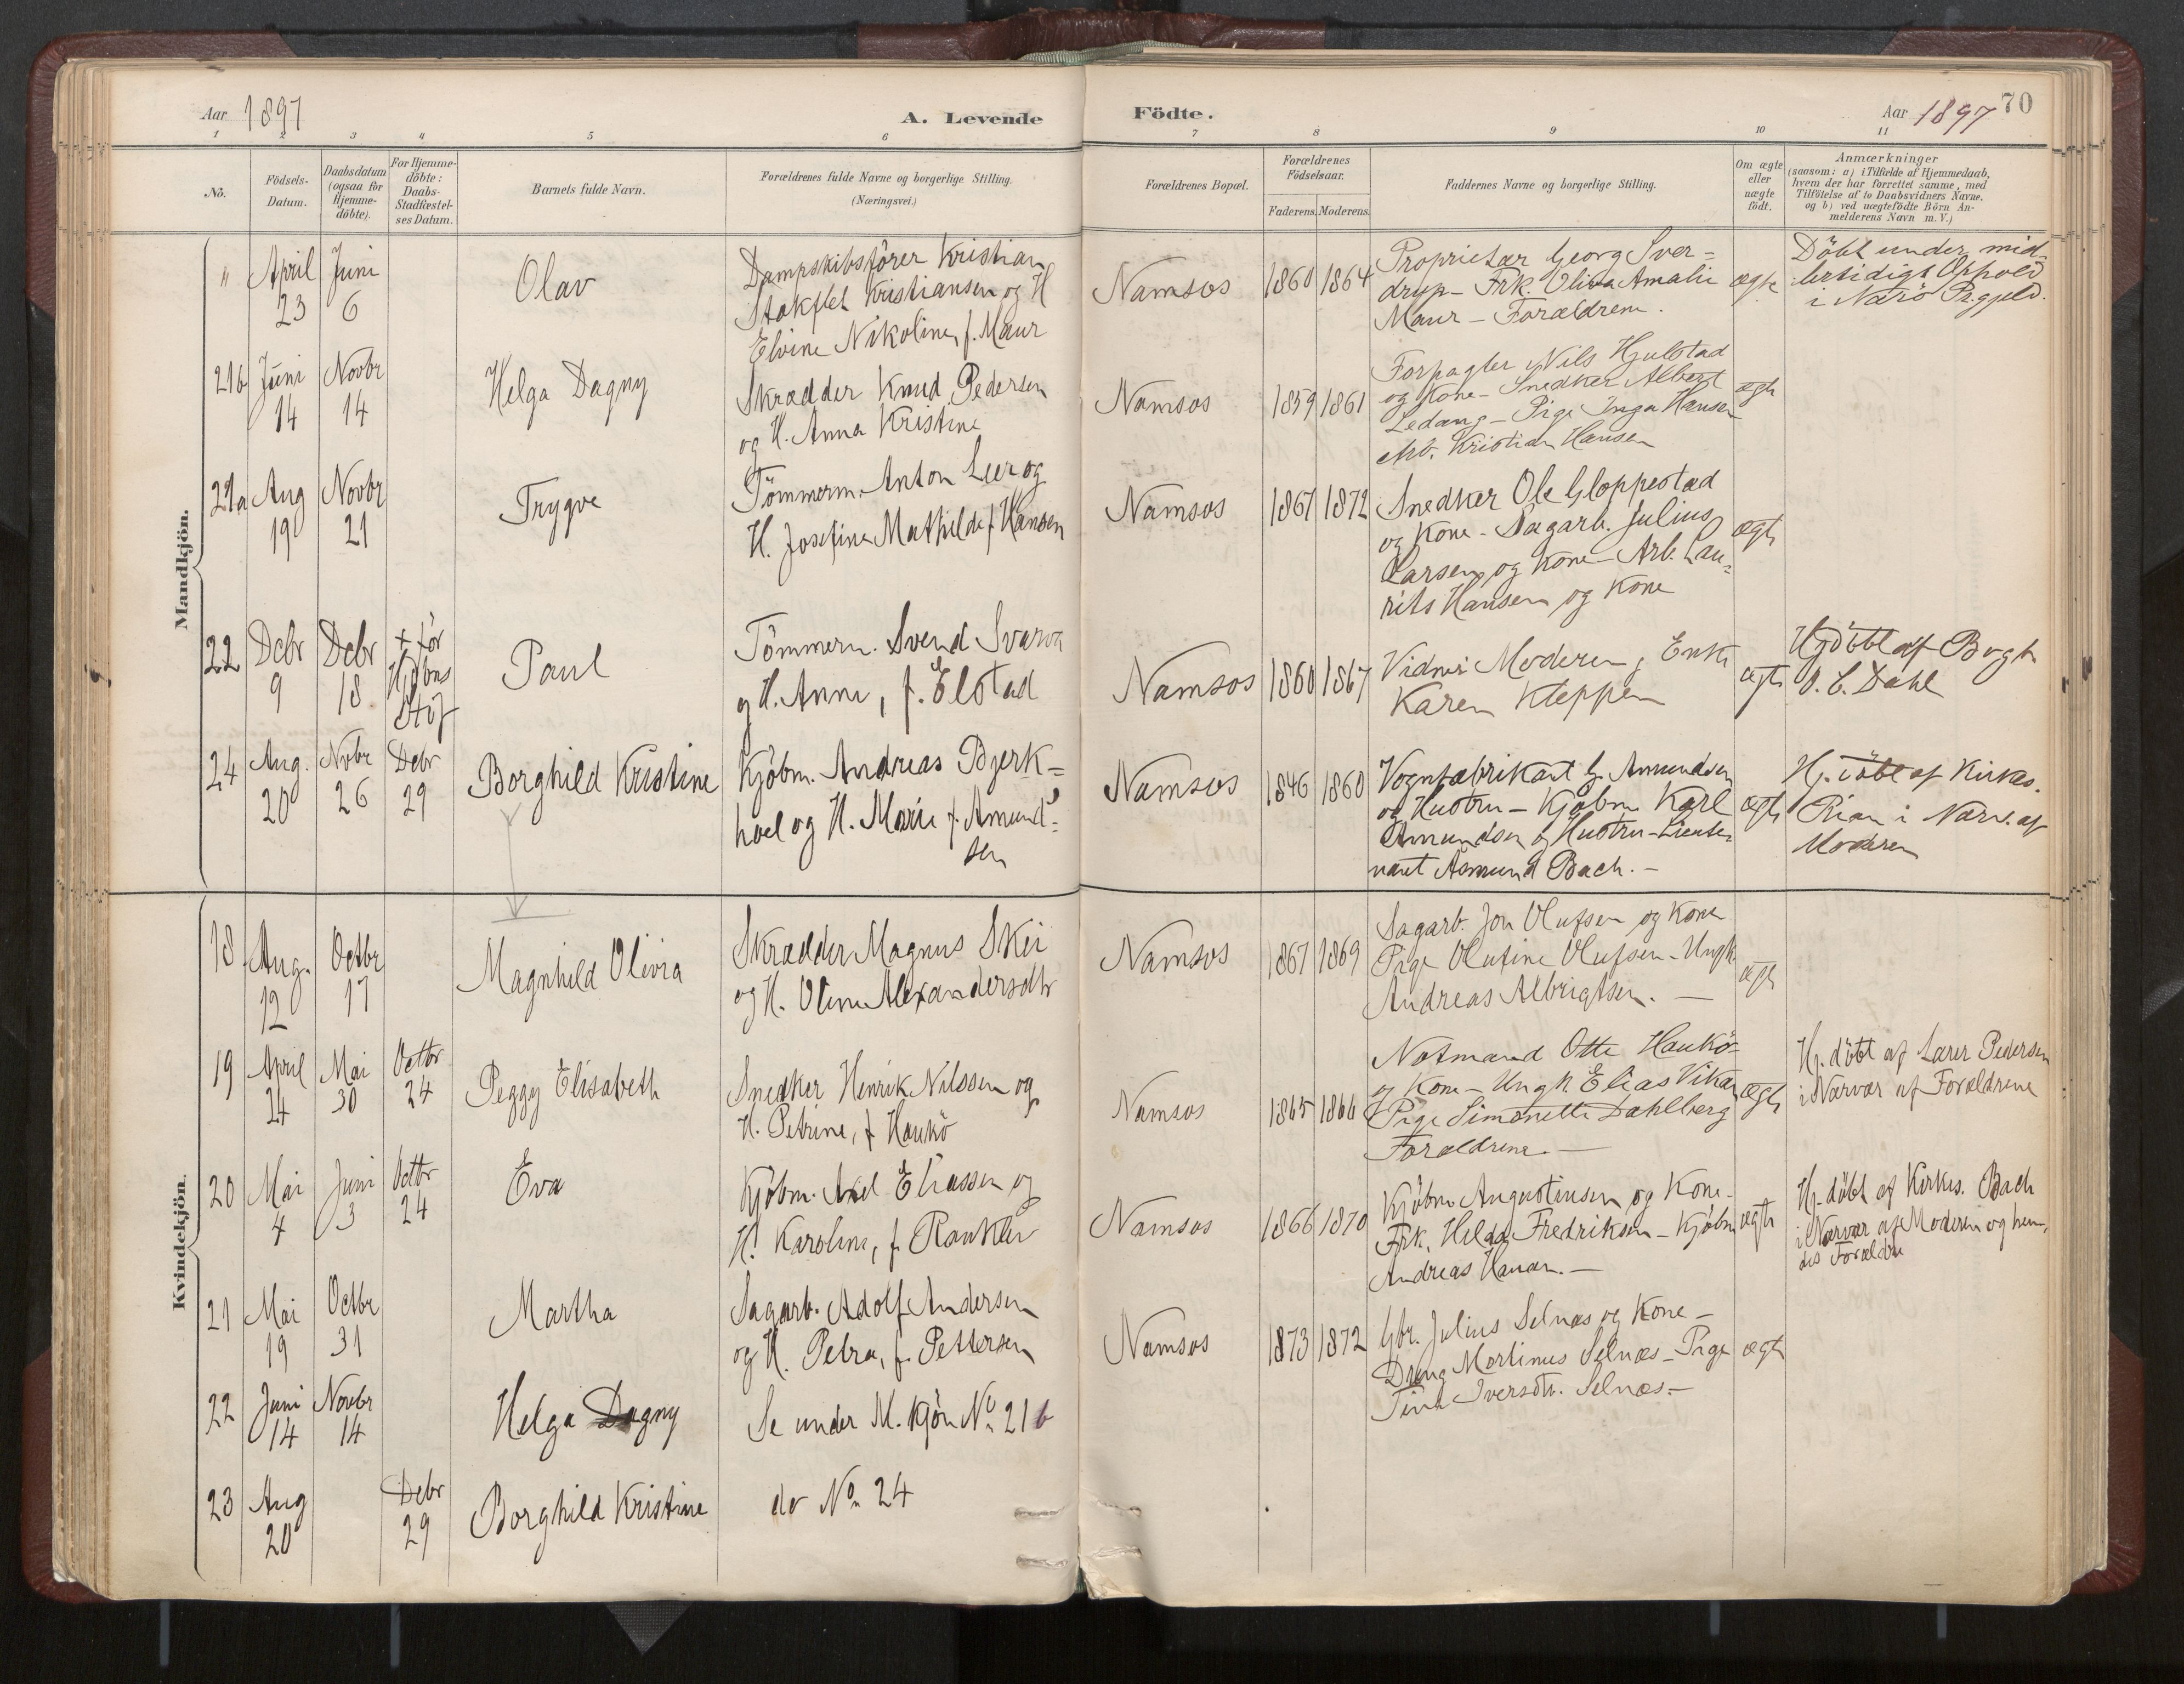 Aar 1897
A. Levende
Födte.
Aar 1897 70
1 2 3 4 5 6 7 8 9 10 11
No.
Födsels-
Datum.
Daabsdatum
(ogsaa for
Hjemme-
döbte).
For Hjemme-
döbte:
Daabs-
Stadfæstel-
ses Datum.
Barnets fulde Navn.
Forældrenes fulde Navne og borgerlige Stilling.
(Næringsvei.)
Forældrenes Bopæl.
Forældrenes
Födselsaar.
Faderens. Moderens.
Faddernes Navne og borgerlige Stilling.
Om ægte
eller
uægte
födt.
Anmærkninger
(saasom: a) i Tilfælde af Hjemmedaab,
hvem der har forrettet samme, med
Tilföielse af to Daabsvidners Navne,
og b) ved uægtefödte Börn An-
melderens Navn m. V.)
Mandkjön.
" April 23
Juni 6
Olav
Dampskibsförer Kristian
Stokflet Kristiansen og H
Elvine Nikoline, f. Maur
Namsos
1860 1864
Proprietær Georg Sver-
drup - Frk. Oliva Amalie
Maur - Forældrene.
ægte
Döbt under mid-
lertidigt Ophold
i Nærö Prgjeld.
21b Juni 14
Novbr 14
Helga Dagny
Skrædder Knud Pedersen
og H. Anna Kristine
Namsos
1859 1861
Forpagter Nils Hjulstad
og Kone - Snedker Albert
Ledang - Pige Inga Hansen
Arb. Kristian Hansen
ægte
21a Aug 19
Novbr 21
Trygve
Tömmerm. Anton Leer og
H. Josefine Mathilde f Hansen
Namsos
1867 1872
Snedker Ole Gloppestad
og Kone - Sagarb. Julius
Larsen og Kone - Arb. Lau-
rits Hansen og Kone
ægte
22 Debr 9
Debr 18
+ för
Hjdbns
Stdf
Paul
Tömmerm. Svend Svarva
og H. Anna, f. Elstad
Namsos
1860 1867
Vidner: Moderen, Enke
Karen Kleppen
ægte
Hjdöbt af Bogh.
O. C. Dahl
24 Aug. 20
Novbr 26
Debr 29
Borghild Kristine
Kjöbm. Andreas Bjerk-
hoel og H. Marie f. Amund-
sen
Namsos
1846 1860
Vognfabrikant G. Amundsen
og Hustru - Kjöbm. Karl
Amundsen og Hustru - Lieute-
nant Asmund Bach. -
ægte
Hj. döbt af Kirkes.
Rian i Nærv. af
Moderen
Kvindekjön.
18 Aug. 12
Octbr 17
Magnhild Olivia
Skrædder Magnus Skei
og H. Oline Alexandersdtr
Namsos
1867 1869
Sagarb. Jon Olufsen og Kone
Pige Olufine Olufsen - Ungk.
Andreas Albrigtsen. -
ægte
19 April 24
Mai 30
Octbr 24
Peggy Elisabeth
Snedker Henrik Nilssen og
H. Petrine, f Haukö
Namsos
1865 1866
Notmand Otte Haukö
og Kone - Ungk. Elias Vikan
Pige Simonette Dahlberg
Forældrene. -
ægte
Hj. döbt af Lærer Pedersen
i Nærvær af Forældrene
20 Mai 4
Juni 3
Octbr 24
Eva
Kjöbm. Axel Eliassen og
H. Karoline, f. Ranklev
Namsos
1866 1870
Kjöbm. Augustinsen og Kone -
Frk. Helda Fredriksen - Kjöbm
Andreas Hanan. -
ægte
Hj. döbt af Kirkes. Bach
i Nærvær af Moderen og hen-
des Forældre
21 Mai 19
Octbr 31
Martha
Sagarb. Adolf Andersen
og H. Petra, f. Pettersen
Namsos
1873 1872
Gbr. Julius Selnæs og Kone -
Dreng Martinus Selnæs - Pige
Tina Iversdtr. Selnæs. -
ægte
22 Juni 14
Novbr 14
Helga Dagny
Se under M. kjön No. 21 b
23 Aug 20
Debr 29
Borghild Kristine
do No. 24